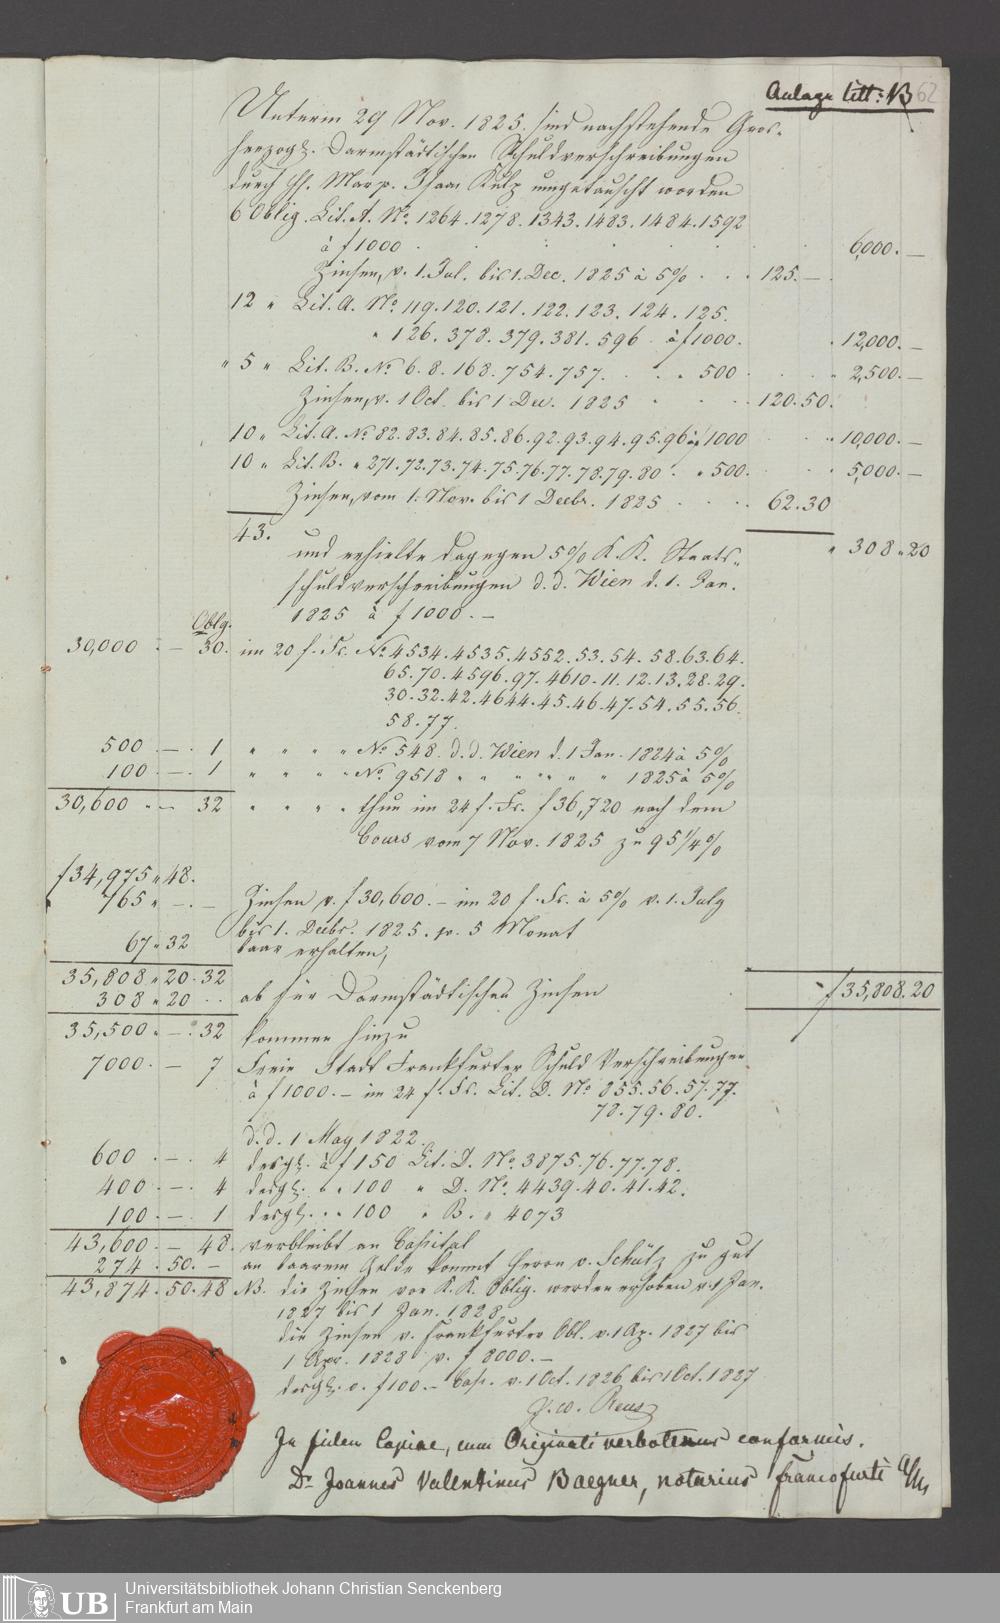 Anlage litt: B 62
Unterm 29 Nov. 1825. sind nachstehende Gros-
herzogl. Darmstädtischen Schuldverschreibungen
durch Hs. Marx. Isaac Kulp umgetauscht worden
6 Oblig. Lit. A. No. 1264. 1278. 1343. 1483. 1484. 1592
à f 1000 . . . . . 6,000. —
Zinsen, v. 1. Jul. bis 1. Dec. 1825 à 5% . . . 125. —
12 " Lit. A. No 119. 120. 121. 122. 123. 124. 125.
" 126. 378. 379. 381. 596. à f 1000. " 12,000. —
" 5 " Lit. B. No. 6. 8. 168. 754. 757. . . " 500 . . . " 2,500. —
Zinsen, v. 1 Oct. bis 1 Dec. 1825 . . . 120. 50.
10 " Lit. A. No 82. 83. 84. 85. 86. 92. 93. 94. 95. 96 à f 1000 . . " 10,000. —
10 " Lit. B. " 271. 72. 73. 74. 75. 76. 77. 78. 79. 80 . " 500. . . " 5,000. —
Zinsen, vom 1. Nov. bis 1 Decbr. 1825 . . . 62. 30
43. " 308 " 20
und erhielte dagegen 5% K. K. Staats-
schuldverschreibungen d. d. Wien d. 1. Jan.
1825 à f 1000. —
Oblg.
30,000 . — 30. im 20 f. Fs. No. 4534. 4535. 4552. 53. 54. 58. 63. 64.
65. 70. 4596. 97. 4610. 11. 12. 13. 28. 29.
30. 32. 42. 4644. 45. 46. 47. 54. 55. 56.
58. 77.
500 . — . 1 " " " " No. 548. d. d. Wien d. 1 Jan. 1824 à 5%
100 . — . 1 " " " " No. 9518 " " " " " " 1825 à 5%
30,600 " — 32 " " " " thun im 24 f. Fs. f 36,720 nach dem
Cours vom 7 Nov. 1825 zu 95 1/4 %
f 34,975 " 48.
765 " — . — Zinsen v. f 30,600. — im 20 f. Fs. à 5% v. 1. July
bis 1. Decbr. 1825. pr. 5 Monat
67 " 32 baar erhalten,
35,808 " 20. 32 f 35,808. 20
308 " 20 . . ab für Darmstädtischen Zinsen
35,500 " — . 32 kommen hinzu
7000 . — 7 Freie Stadt Frankfurter Schuld Verschreibungen
à f 1000. — im 24 f. Fs. Lit. D. No. 855. 56. 57. 77.
78. 79. 80.
d. d. 1 May 1822.
600 . — . 4 desgl. à f 150 Lit. D. No. 3875. 76. 77. 78.
400 . — . 4 desgl. " " 100 " D. No. 4439. 40. 41. 42.
100 . — . 1 desgl. . " 100 " B. " 4073
43,600 . — 48. verbleibt an Capital
274 . 50. — an baarem Gelde kommt Herrn v. Schütz zu gut
43,874. 50. 48 NB. die Zinsen von K. K. Oblig. werden erhoben v. 1 Jan.
1827 bis 1 Jan. 1828.
die Zinsen v. Frankfurter Obl. v. 1 Ap. 1827 bis
1 Apr. 1828 v. f 8000. —
desgl. v. f 100. — Cap. v. 1 Oct. 1826 bis 1 Oct. 1827
J. W. Reus
In fidem Copiae, cum Originali verbotenus conformis.
Dr. Joannes Valentinus Baegner, notarius francofurti
UB Universitätsbibliothek Johann Christian Senckenberg
Frankfurt am Main